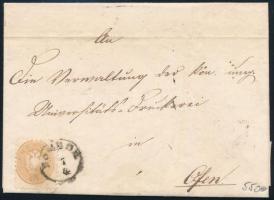 An
Die Verwaltung der kön. ung.
Universitäts-Druckerei
in
Ofen